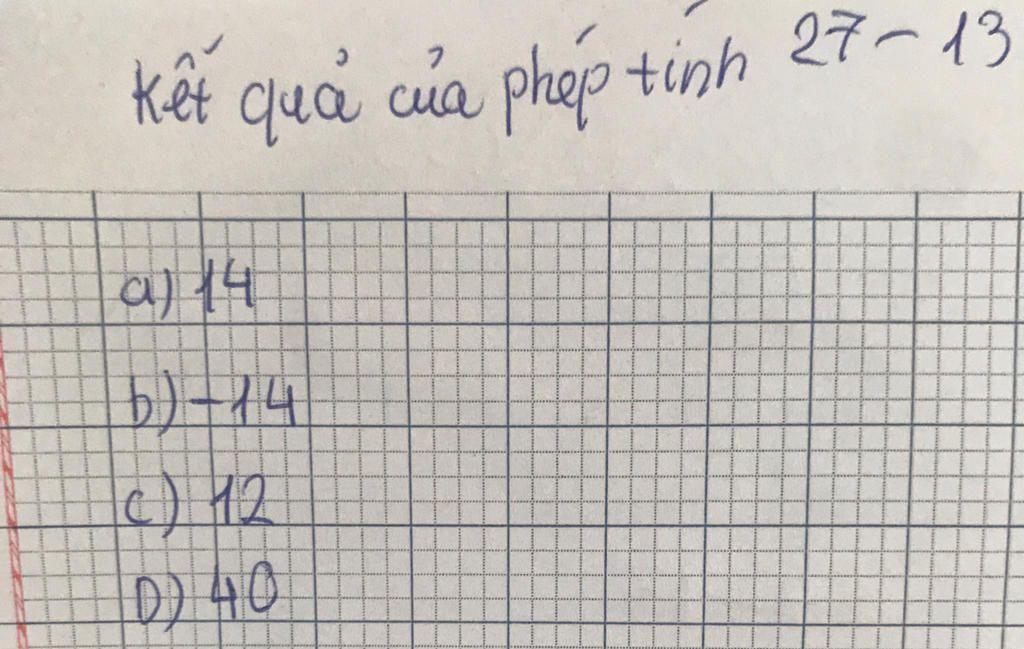 Kết quả của phép tính 27 - 13
a) 14
b) -14
c) 12
D) 40